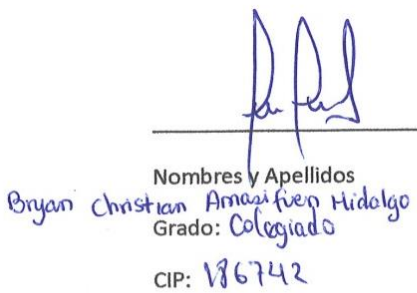 Nombres y Apellidos
Bryan Christian Amasifuen Hidalgo
Grado: Colegiado
CIP: 186742